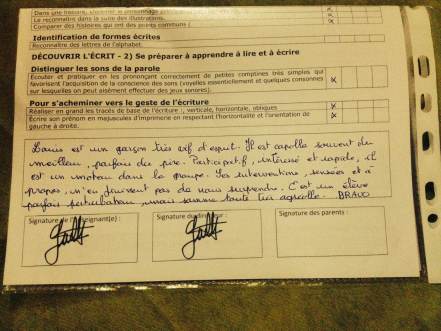 Dans une histoire, identifier le personnage principal
Le reconnaître dans la suite des illustrations.
Comparer des histoires qui ont des points communs (
x
x
x
Identification de formes écrites
Reconnaître des lettres de l'alphabet.
DÉCOUVRIR L'ÉCRIT - 2) Se préparer à apprendre à lire et à écrire
Distinguer les sons de la parole
Ecouter et pratiquer en les prononçant correctement de petites comptines très simples qui
favorisent l'acquisition de la conscience des sons (voyelles essentiellement et quelques consonnes
sur lesquelles on peut aisément effectuer des jeux sonores).
x
Pour s'acheminer vers le geste de l'écriture
Réaliser en grand les tracés de base de l'écriture : verticale, horizontale, obliques
x
Ecrire son prénom en majuscules d'imprimerie en respectant l'horizontalité et l'orientation de
gauche à droite.
x
est un garçon très vif d'esprit. Il est capable souvent du
meilleur, parfois du pire. Participatif, intéressé et rapide, il
est un moteur dans le groupe. Ses interventions, sensées et à
propos, n'en finissent pas de nous surprendre. C'est un élève
parfois perturbateur, mais somme toute très agréable. BRAVO
Signature de l'enseignant(e) :
Signature du directeur :
Signature des parents :